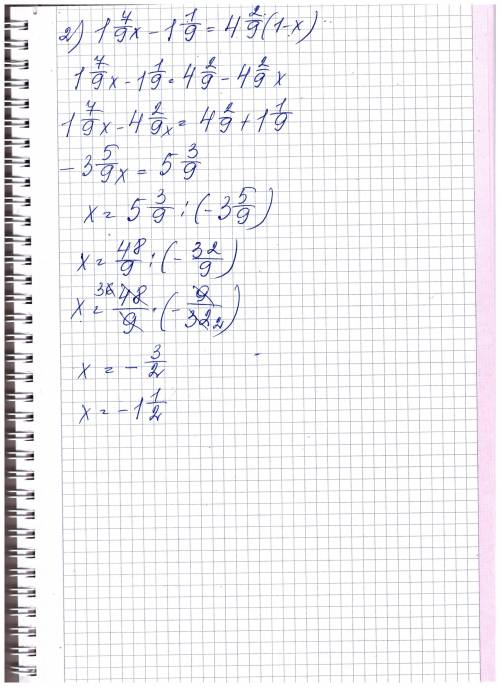 2) 1 7/9 x - 1 1/9 = 4 2/9 (1-x)
1 7/9 x - 1 1/9 = 4 2/9 - 4 2/9 x
1 7/9 x - 4 2/9 x = 4 2/9 + 1 1/9
- 3 5/9 x = 5 3/9
x = 5 3/9 : (- 3 5/9)
x = 48/9 : (- 32/9)
x = 3 48/9 · (- 9/32 2)
x = - 3/2
x = - 1 1/2